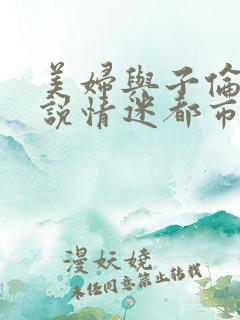 美婦與子倫
說情迷都市
漫妖嬈
未經同意禁止轉載